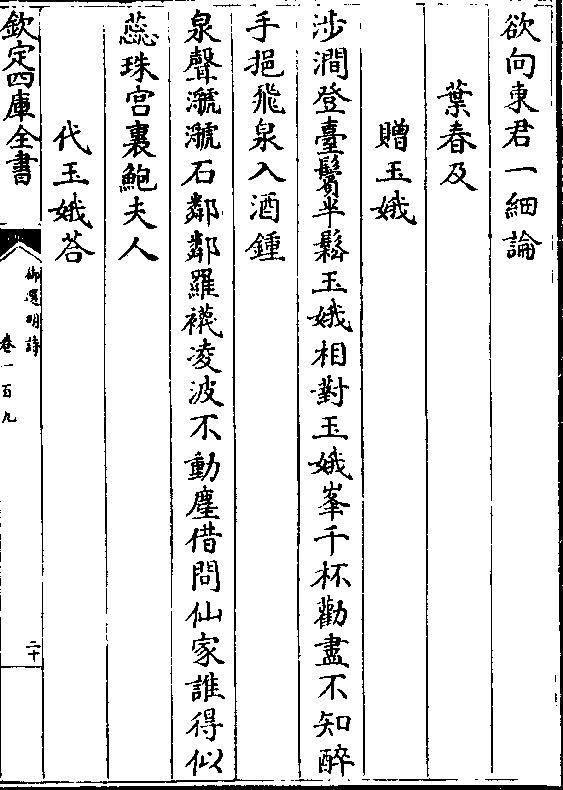 欲向東君一細論
葉春及
贈玉娥
涉澗登臺鬢半鬆玉娥相對玉娥峯千杯勸盡不知醉
手挹飛泉入酒鍾
泉聲㶁㶁石鄰鄰羅襪凌波不動塵借問仙家誰得似
蕊珠宮裏鮑夫人
代玉娥荅
欽定四庫全書
御選明詩
卷一百九
二十